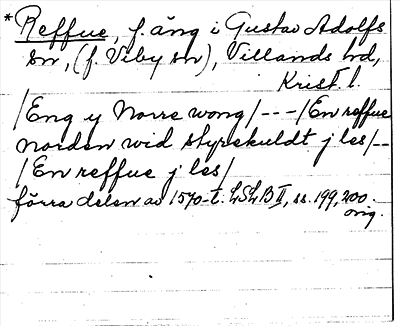 * Reffue, f. äng i Gustav Adolfs
sn, (f. Viby sn), Villands hd,
Krist. l.
/Eng y Norre wong/---/En reffue
norden wid styrekuldt j les/--
/En reffue j les/
förra delen av 1570-t. LSLB II, ss. 199, 200.
orig.